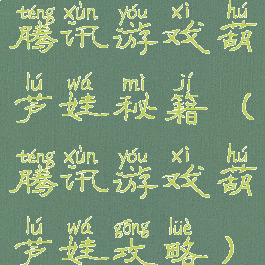 téng xùn yóu xì hú
腾讯游戏葫
lú wá mì jí
芦娃秘籍（
téng xùn yóu xì hú
腾讯游戏葫
lú wá gōng lüè
芦娃攻略）